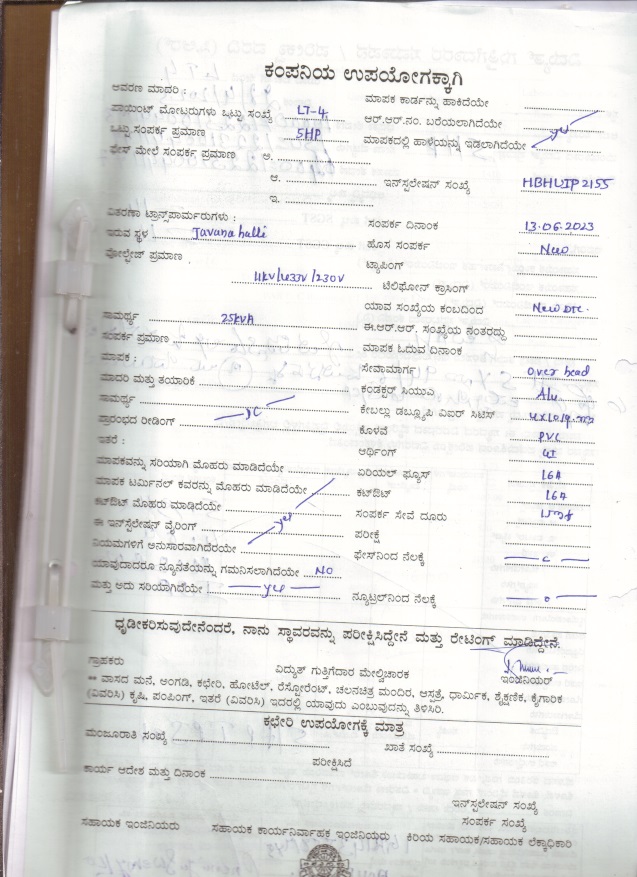 ಕಂಪನಿಯ ಉಪಯೋಗಕ್ಕಾಗಿ
ಆವರಣ ಮಾದರಿ :
ಪಾಯಿಂಟ್ ಮೋಟರುಗಳು ಒಟ್ಟು ಸಂಖ್ಯೆ LT-4
ಒಟ್ಟು ಸಂಪರ್ಕ ಪ್ರಮಾಣ 5HP
ಫೇಸ್ ಮೇಲೆ ಸಂಪರ್ಕ ಪ್ರಮಾಣ ಅ.
ಆ.
ಇ.
ಮಾಪಕ ಕಾರ್ಡನ್ನು ಹಾಕಿದೆಯೇ
ಆರ್.ಆರ್.ನಂ. ಬರೆಯಲಾಗಿದೆಯೇ
ಮಾಪಕದಲ್ಲಿ ಹಾಳೆಯನ್ನು ಇಡಲಾಗಿದೆಯೇ yes
ಇನ್ಸ್ಟಲೇಷನ್ ಸಂಖ್ಯೆ HBHUIP2155
ವಿತರಣಾ ಟ್ರಾನ್ಸ್‌ಫಾರ್ಮರುಗಳು :
ಇರುವ ಸ್ಥಳ Javanahalli
ವೋಲ್ಟೇಜ್ ಪ್ರಮಾಣ
11KV/433V/230V
ಸಾಮರ್ಥ್ಯ 25KVA
ಸಂಪರ್ಕ ಪ್ರಮಾಣ
ಮಾಪಕ :
ಮಾದರಿ ಮತ್ತು ತಯಾರಿಕೆ
ಸಾಮರ್ಥ್ಯ
ಪ್ರಾರಂಭದ ರೀಡಿಂಗ್
ಇತರೆ :
ಮಾಪಕವನ್ನು ಸರಿಯಾಗಿ ಮೊಹರು ಮಾಡಿದೆಯೇ
ಮಾಪಕ ಟರ್ಮಿನಲ್ ಕವರನ್ನು ಮೊಹರು ಮಾಡಿದೆಯೇ
ಕಟ್‌ಔಟ್ ಮೊಹರು ಮಾಡಿದೆಯೇ
ಈ ಇನ್ಸ್ಟಲೇಷನ್ ವೈರಿಂಗ್ yes
ನಿಯಮಗಳಿಗೆ ಅನುಸಾರವಾಗಿದೆರಯೇ
ಯಾವುದಾದರೂ ನ್ಯೂನತೆಯನ್ನು ಗಮನಿಸಲಾಗಿದೆಯೇ NO
ಮತ್ತು ಅದು ಸರಿಯಾಗಿದೆಯೇ yes
ಸಂಪರ್ಕ ದಿನಾಂಕ 13.06.2023
ಹೊಸ ಸಂಪರ್ಕ New
ಟ್ಯಾಪಿಂಗ್
ಟೆಲಿಫೋನ್ ಕ್ರಾಸಿಂಗ್
ಯಾವ ಸಂಖ್ಯೆಯ ಕಂಬದಿಂದ New DTC.
ಈ.ಆರ್.ಆರ್. ಸಂಖ್ಯೆಯ ನಂತರದ್ದು
ಮಾಪಕ ಓದುವ ದಿನಾಂಕ
ಸೇವಾಮಾರ್ಗ over head
ಕಂಡಕ್ಟರ್ ಸಿಯುಎ Alu
ಕೇಬಲ್ಲು ಡಬ್ಲ್ಯೂಪಿ ವಿಐಆರ್ ಸಿಟಿಸ್
ಕೊಳವೆ PVC
ಆರ್ಥಿಂಗ್ GI
ಏರಿಯಲ್ ಫ್ಯೂಸ್ 16A
ಕಟ್‌ಔಟ್ 16A
ಸಂಪರ್ಕ ಸೇವೆ ದೂರು
ಪರೀಕ್ಷೆ
ಫೇಸ್‌ನಿಂದ ನೆಲಕ್ಕೆ
ನ್ಯೂಟ್ರಲ್‌ನಿಂದ ನೆಲಕ್ಕೆ
ಧೃಡೀಕರಿಸುವುದೇನೆಂದರೆ, ನಾನು ಸ್ಥಾವರವನ್ನು ಪರೀಕ್ಷಿಸಿದ್ದೇನೆ ಮತ್ತು ರೇಟಿಂಗ್ ಮಾಡಿದ್ದೇನೆ.
ಗ್ರಾಹಕರು ವಿದ್ಯುತ್ ಗುತ್ತಿಗೆದಾರ ಮೇಲ್ವಿಚಾರಕ ಇಂಜಿನಿಯರ್
** ವಾಸದ ಮನೆ, ಅಂಗಡಿ, ಕಛೇರಿ, ಹೋಟೆಲ್, ರೆಸ್ಟೋರೆಂಟ್, ಚಲನಚಿತ್ರ ಮಂದಿರ, ಆಸ್ಪತ್ರೆ, ಧಾರ್ಮಿಕ, ಶೈಕ್ಷಣಿಕ, ಕೈಗಾರಿಕ
(ವಿವರಿಸಿ) ಕೃಷಿ, ಪಂಪಿಂಗ್, ಇತರೆ (ವಿವರಿಸಿ) ಇದರಲ್ಲಿ ಯಾವುದು ಎಂಬುವುದನ್ನು ತಿಳಿಸಿರಿ.
ಕಛೇರಿ ಉಪಯೋಗಕ್ಕೆ ಮಾತ್ರ
ಮಂಜೂರಾತಿ ಸಂಖ್ಯೆ ಖಾತೆ ಸಂಖ್ಯೆ
ಪರೀಕ್ಷಿಸಿದೆ
ಕಾರ್ಯ ಆದೇಶ ಮತ್ತು ದಿನಾಂಕ
ಇನ್ಸ್ಟಲೇಷನ್ ಸಂಖ್ಯೆ
ಸಂಪರ್ಕ ಸಂಖ್ಯೆ
ಸಹಾಯಕ ಇಂಜಿನಿಯರು ಸಹಾಯಕ ಕಾರ್ಯನಿರ್ವಾಹಕ ಇಂಜಿನಿಯರು ಕಿರಿಯ ಸಹಾಯಕ/ಸಹಾಯಕ ಲೆಕ್ಕಾಧಿಕಾರಿ